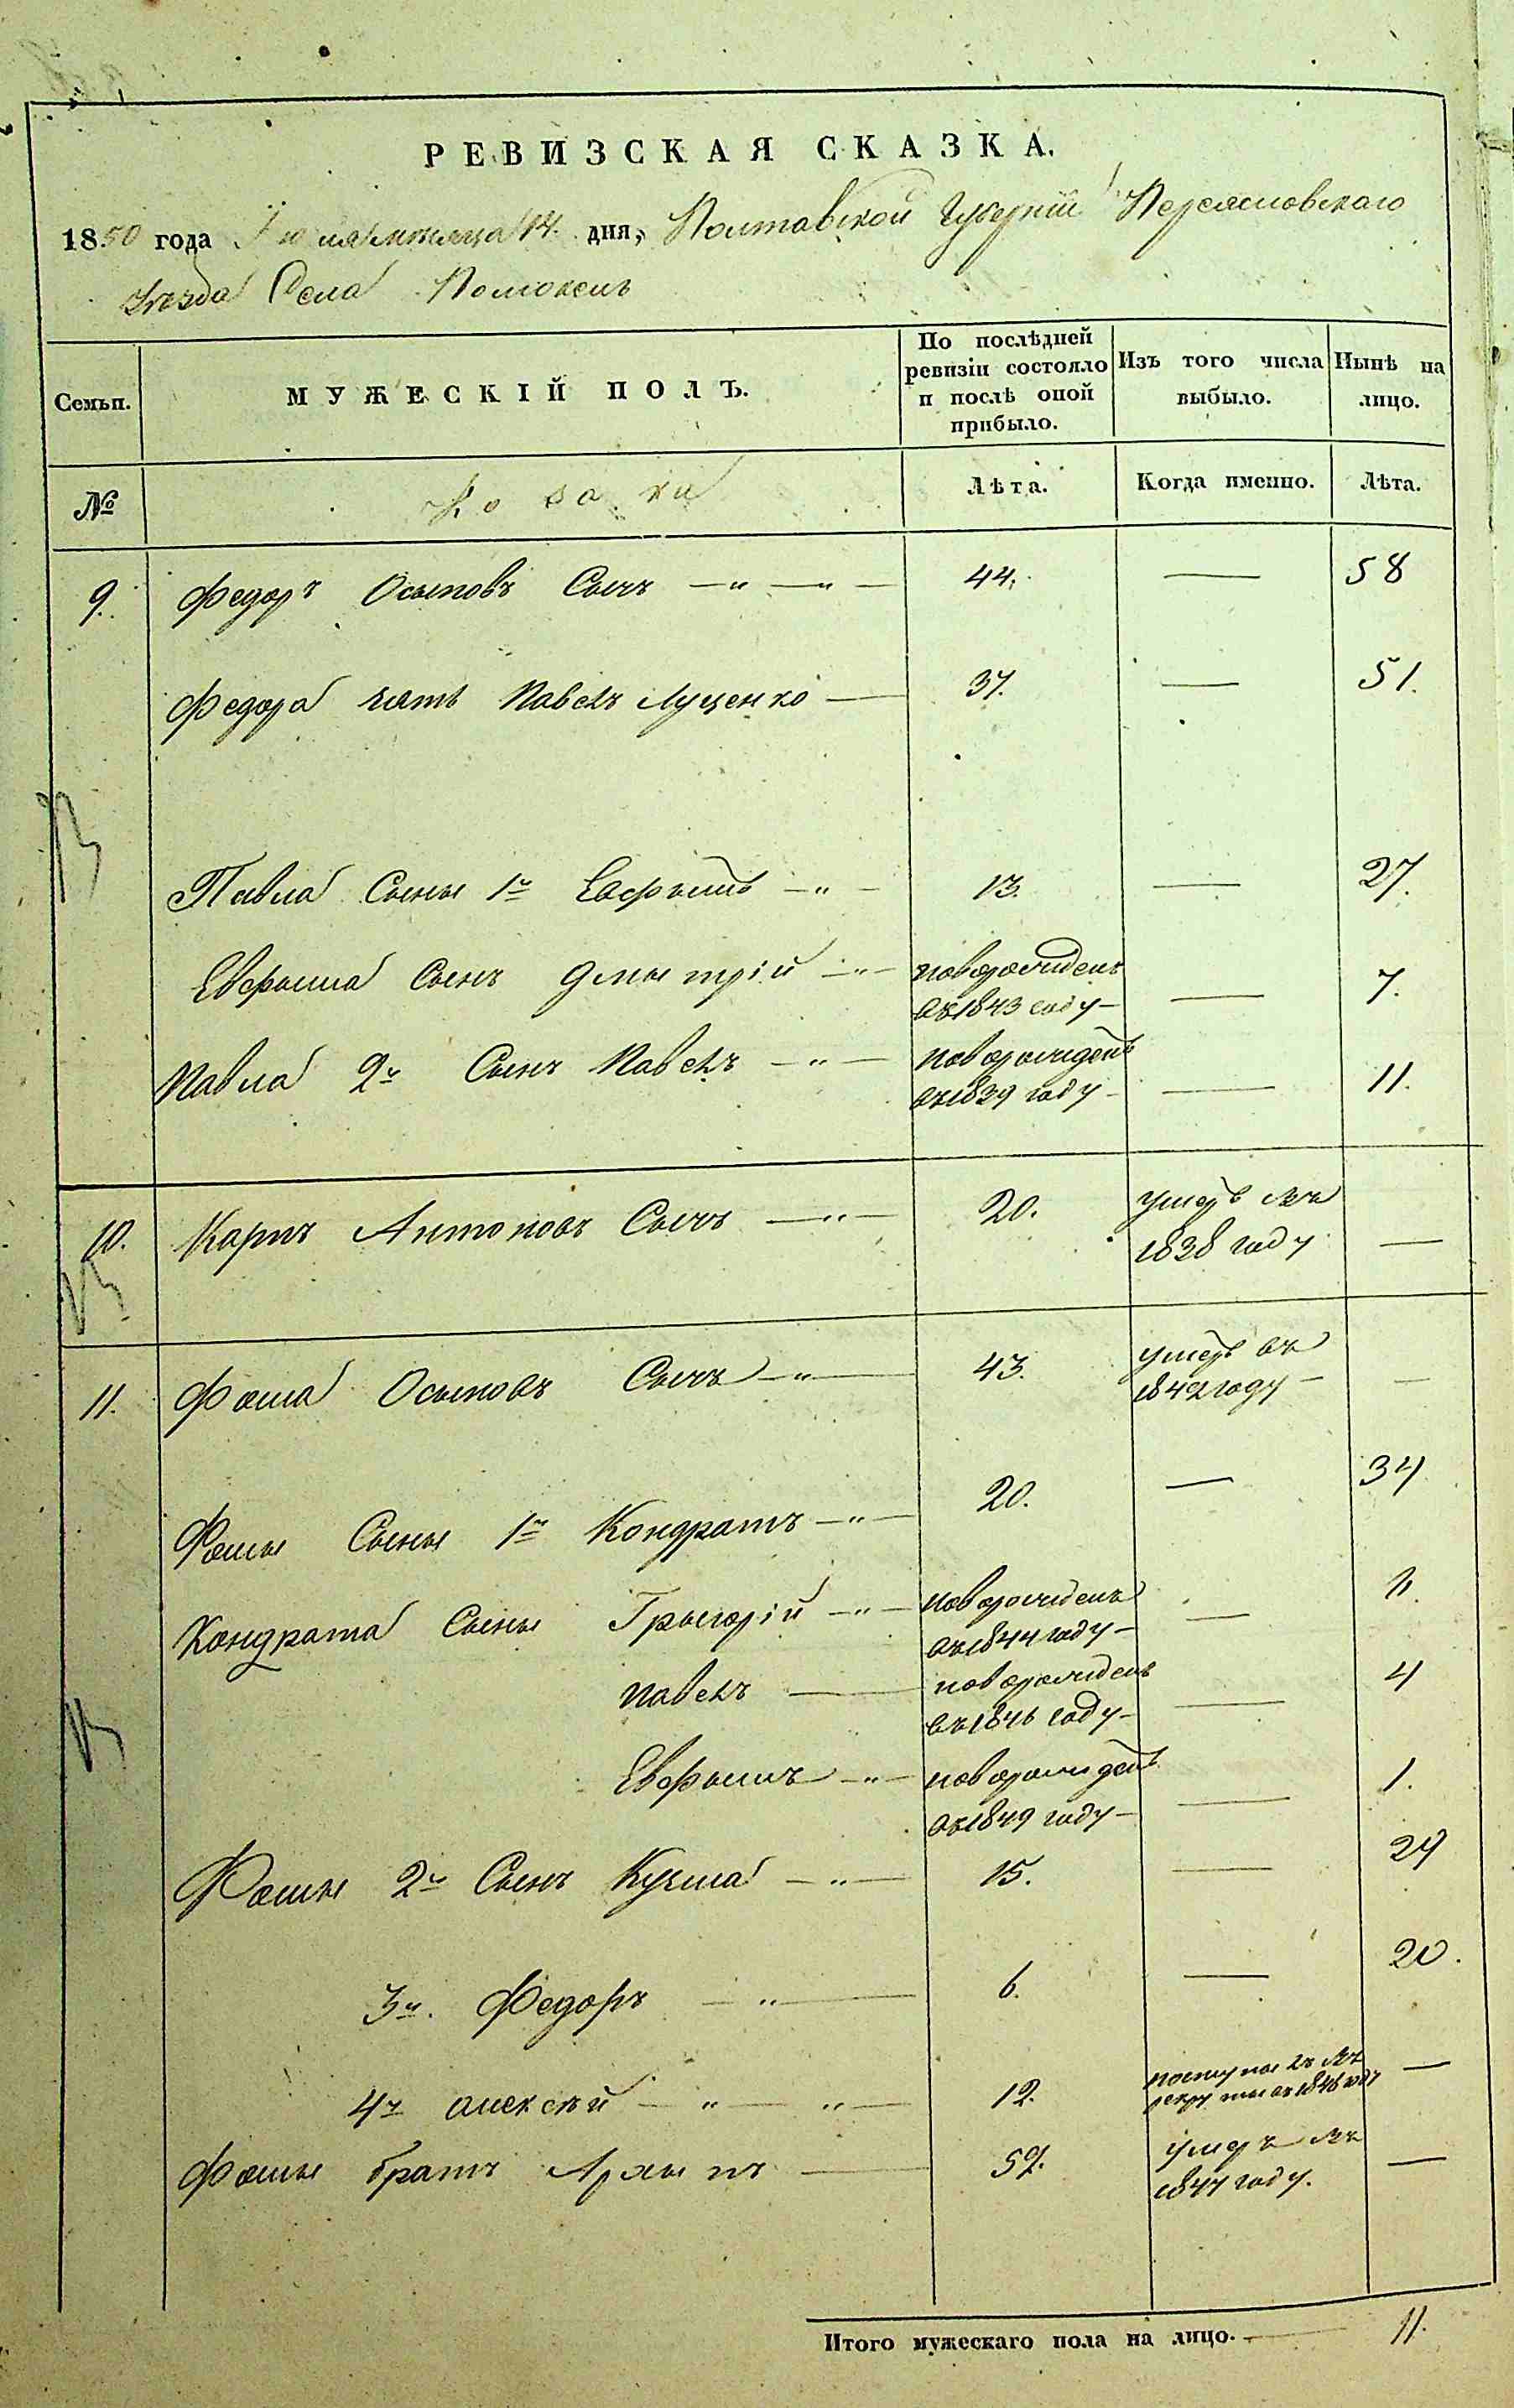 РЕВИЗСКАЯ СКАЗКА.
1850 года Іюля мѣсяца 14 дня, Полтавской Губерніи Переяславскаго
Уѣзда Села Помоклъ
Семьи.
МУЖЕСКІЙ ПОЛЪ.
По послѣдней
ревизіи состояло
и послѣ оной
прибыло.
Изъ того числа
выбыло.
Нынѣ на
лицо.
№
Козаки
Лѣта.
Когда именно.
Лѣта.
9. Федоръ Осиповъ Сычъ — „ — „ — 44. — 58
Федора зять Павелъ Луценко — 37. — 51.
Павла Сыны 1й Евфымъ — „ — 13. — 27.
Евфыма Сынъ Дмытрій — „ — новорожденъ
въ 1843 году — — 7.
Павла 2й Сынъ Павелъ — „ — новорожденъ
въ 1839 году — — 11.
10. Карпъ Антоновъ Сычъ — „ — 20. умеръ въ
1838 году —
11. Фома Осыповъ Сычъ — „ — 43. умеръ въ
1842 году — —
Фомы Сыны 1й Кондратъ — „ — 20. — 34
Кондрата Сыны Грыгорій — „ — новорожденъ
въ 1844 году — —
Павелъ — новорожденъ
въ 1846 году — — 4
Евфымъ — „ — новорожденъ
въ 1849 году — — 1.
Фомы 2й Сынъ Кузьма — „ — 15. — 29
3й. Федоръ — „ — 6. — 20.
4й Алексѣй — „ — „ — 12. поступилъ въ
рекруты въ 1846 году —
Фомы братъ Архыпъ — 52. умеръ въ
1847 году. —
Итого мужескаго пола на лицо. — 11.